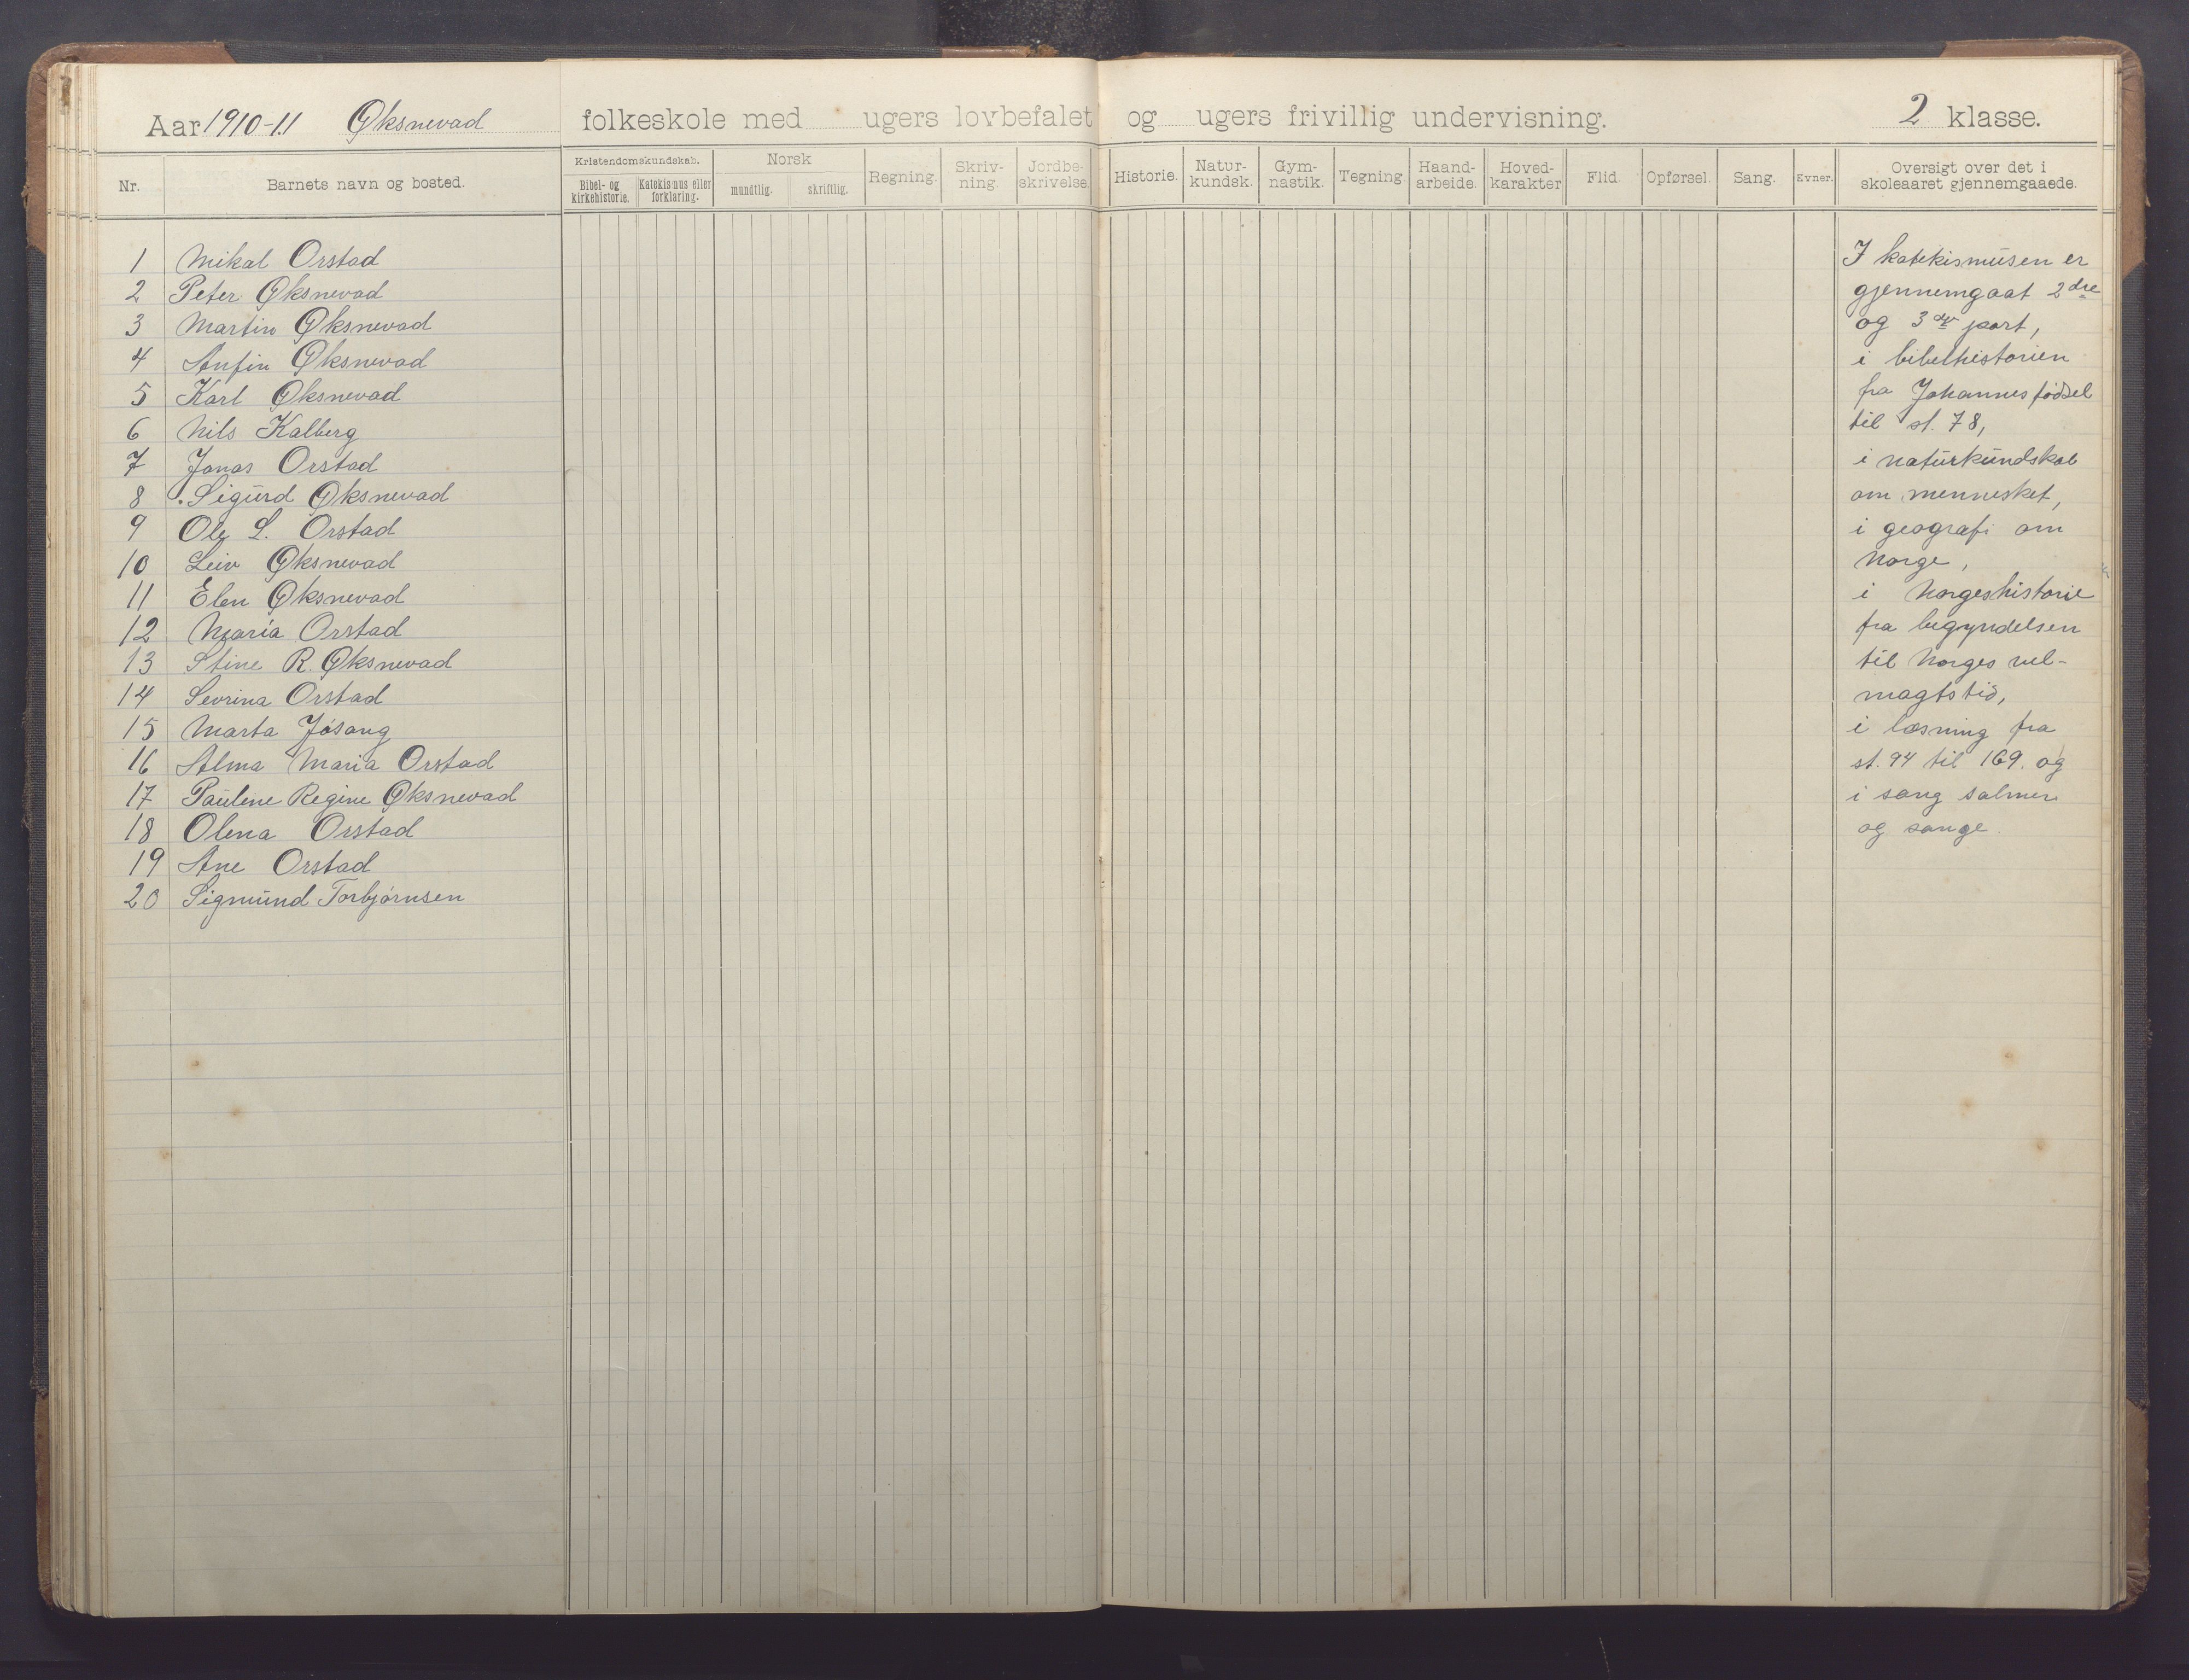 Aar 1910-11 Øksnevad folkeskole med ugers lovbefalet og ugers frivillig undervisning. 2 klasse.
Nr.
Barnets navn og bosted.
Kristendomskundskab.
Bibel- og kirkehistorie.
Katekismus eller forklaring.
Norsk
mundtlig.
skriftlig.
Regning.
Skriv-
ning.
Jordbe-
skrivelse.
Historie.
Natur-
kundsk.
Gym-
nastik.
Tegning.
Haand-
arbeide.
Hoved-
karakter
Flid.
Opførsel.
Sang.
Evner.
Oversigt over det i
skoleaaret gjennemgaaede.
1 Mikal Orstad
2 Peter Øksnevad
3 Martin Øksnevad
4 Anfin Øksnevad
5 Karl Øksnevad
6 Nils Kalberg
7 Jonas Orstad
8 Sigurd Øksnevad
9 Ole L. Orstad
10 Leiv Øksnevad
11 Elen Øksnevad
12 Maria Orstad
13 Stine R. Øksnevad
14 Sevrina Orstad
15 Marta Jøsang
16 Alma Maria Orstad
17 Pauline Regine Øksnevad
18 Olena Orstad
19 Ane Orstad
20 Sigmund Torbjørnsen
I katekismusen er
gjennemgaat 2dre
og 3die part,
i bibelhistorien
fra Johannes fødsel
til st. 78,
i naturkundskab
om mennesket,
i geografi om
Norge,
i Norgeshistorie
fra begyndelsen
til Norges vel-
magtstid,
i læsning fra
st. 94 til 169. og
i sang salmer
og sange.